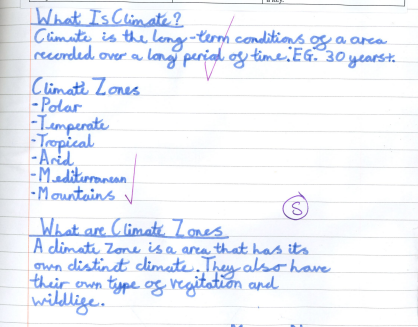 What Is Climate?
Climate is the long-term conditions of a area
recorded over a long period of time. EG. 30 years+.
Climate Zones
-Polar
-Temperate
-Tropical
-Arid
-Mediterranean
-Mountains
S
What are Climate Zones
A climate zone is a area that has its
own distinct climate. They also have
their own type of vegitation and
wildlife.